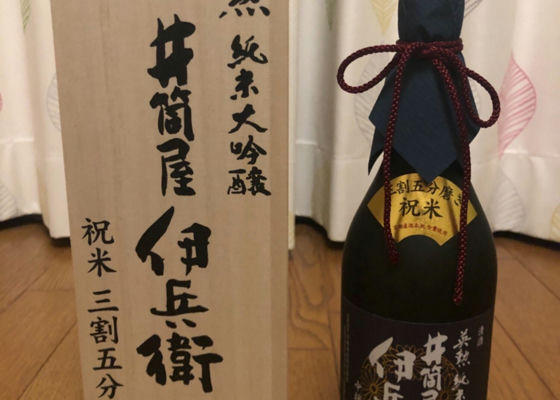 勲 純米大吟醸
井筒屋 伊兵衛
祝米 三割五分
三割五分磨き
祝米
清酒
英勲 純米
井筒屋
伊兵